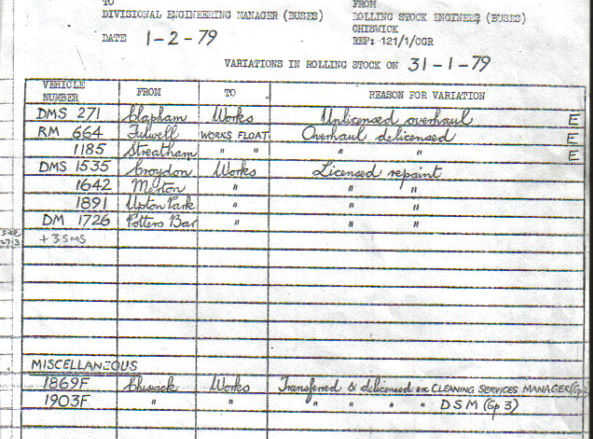 TO FROM
DIVISIONAL ENGINEERING MANAGER (BUSES) ROLLING STOCK ENGINEER (BUSES)
CHISWICK
DATE 1-2-79 REF: 121/1/CGR
VARIATIONS IN ROLLING STOCK ON 31-1-79
VEHICLE NUMBER FROM TO REASON FOR VARIATION
DMS 271 Clapham Works Unlicensed overhaul E
RM 664 Fulwell WORKS FLOAT. Overhaul delicensed E
1185 Streatham " " " " E
DMS 1535 Croydon Works Licensed repaint
1642 Merton " " "
1891 Upton Park " " "
DM 1726 Potters Bar " " "
+ 3 SMS
MISCELLANEOUS
1869F Chiswick Works Transferred & delicensed ex CLEANING SERVICES MANAGER (Gp
1903F " " " " " " DSM (Gp 3)